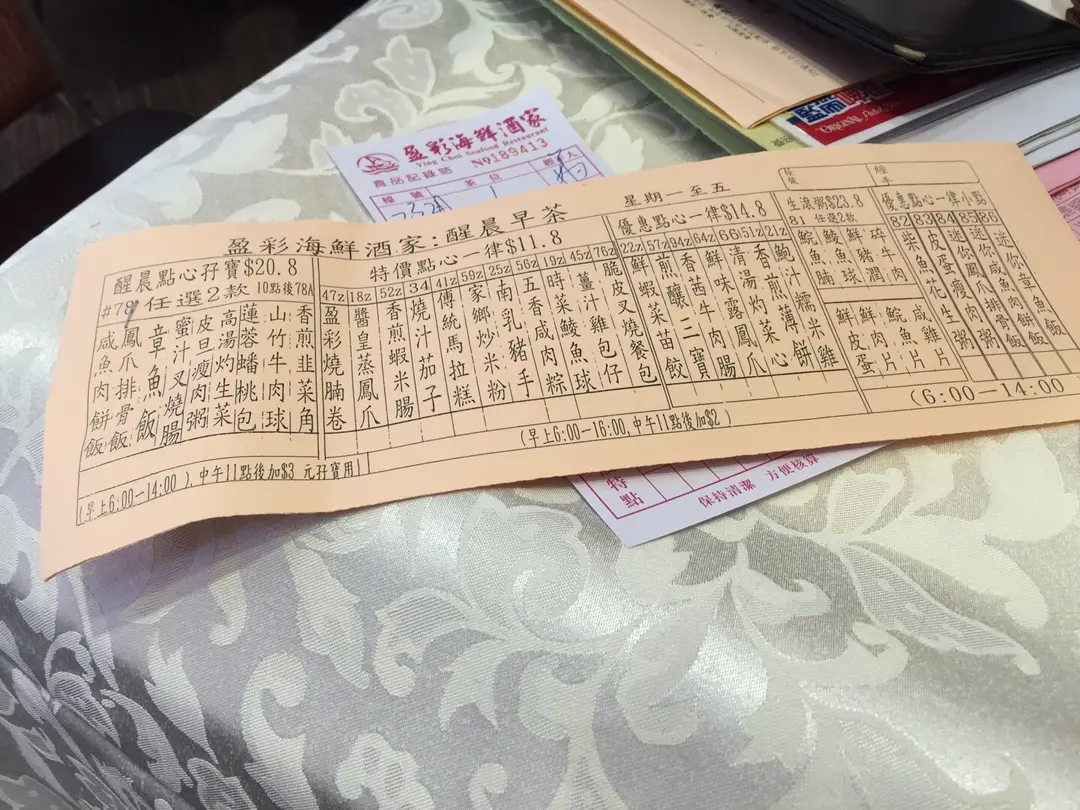 盈彩海鮮酒家
Ying Choi Seafood Restaurant
食品記錄咭 №189413
檯號 茶位
盈彩海鮮酒家:醒晨早茶 星期一至五
醒晨點心孖寶$20.8
#78 任選2款 10點後78A
咸魚肉餅飯
鳳爪排骨飯
章魚飯
蜜汁叉燒腸
皮旦瘦肉粥
高湯灼生菜
蓮蓉蟠桃包
山竹牛肉球
香煎韭菜角
(早上6:00-14:00),中午11點後加$3 元孖寶用
特價點心一律$11.8
47z 盈彩燒腩卷
18z 醬皇蒸鳳爪
52z 香煎蝦米腸
34 燒汁茄子
41z 傳統馬拉糕
59z 家鄉炒米粉
25z 南乳豬手
56z 五香咸肉粽
19z 時菜鯪魚球
45z 薑汁雞包仔
76z 脆皮叉燒餐包
優惠點心一律$14.8
22z 鮮蝦菜苗餃
57z 煎釀二寶
94z 香茜牛肉腸
64z 鮮味露鳳爪
66 清湯灼菜心
51z 香煎薄餅
21z 鮑汁糯米雞
(早上6:00-16:00,中午11點後加$2)
生滾粥$23.8
81 任選2款
鯇魚腩
鯪魚球
鮮豬潤
碎牛肉
鮮皮蛋
鮮肉片
鯇魚片
咸雞片
優惠點心一律小點
82 柴魚花生粥
83 皮蛋瘦肉粥
84 迷你鳳爪排骨飯
85 迷你咸魚肉餅飯
86 迷你章魚飯
(6:00-14:00)
特點
保持清潔 方便核算